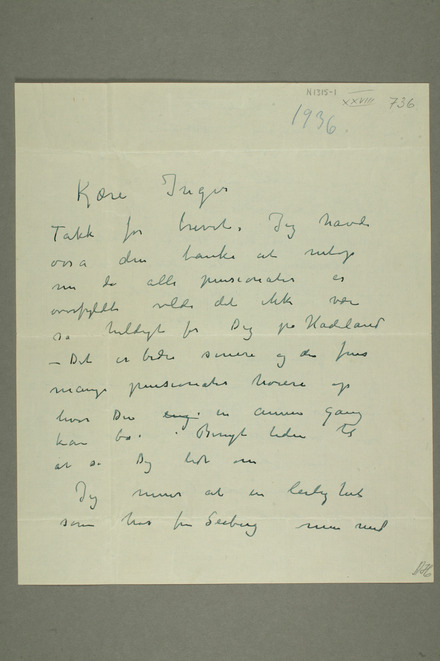 N1315-1
XXVIII 736
1936.
Kjære Inger
Takk for brevet. Jeg havde
osså den tanke at netop
nu da alle pensionater er
overfyldt vilde det ikke være
så heldigt for Dig på Hadeland
– Det er bedre senere og der fins
mange pensionater høiere op
hvor Du en annen Gang
kan bo. Benyt tiden til
at se Dig lidt om
Jeg mener at en leilighet
som hos fru Seeberg men med